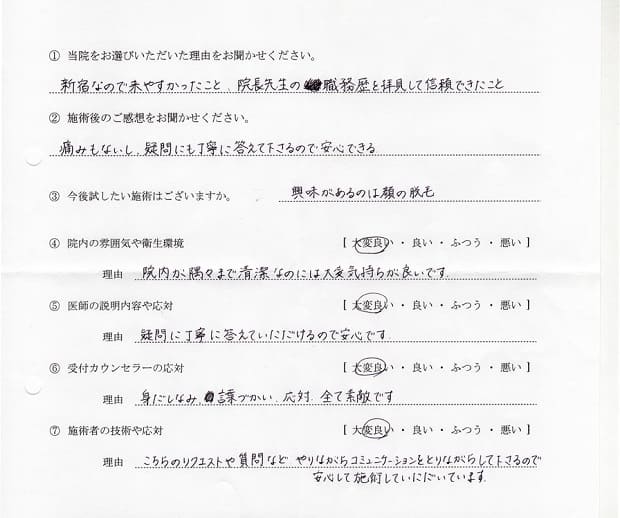 ① 当院をお選びいただいた理由をお聞かせください。
新宿なので来やすかったこと、院長先生の職務歴を拝見して信頼できたこと
② 施術後のご感想をお聞かせください。
痛みもないし、疑問にも丁寧に答えて下さるので安心できる
③ 今後試したい施術はございますか。 興味があるのは顔の脱毛
④ 院内の雰囲気や衛生環境 [ 大変良い ・ 良い ・ ふつう ・ 悪い ]
理由 院内が隅々まで清潔なのには大変気持ちが良いです.
⑤ 医師の説明内容や応対 [ 大変良い ・ 良い ・ ふつう ・ 悪い ]
理由 疑問に丁寧に答えていただけるので安心です.
⑥ 受付カウンセラーの応対 [ 大変良い ・ 良い ・ ふつう ・ 悪い ]
理由 身だしなみ 言葉づかい、応対、全て素敵です
⑦ 施術者の技術や応対 [ 大変良い ・ 良い ・ ふつう ・ 悪い ]
理由 こちらのリクエストや質問など やりながらコミュニケーションをとりながらして下さるので
安心して施術していただいています.